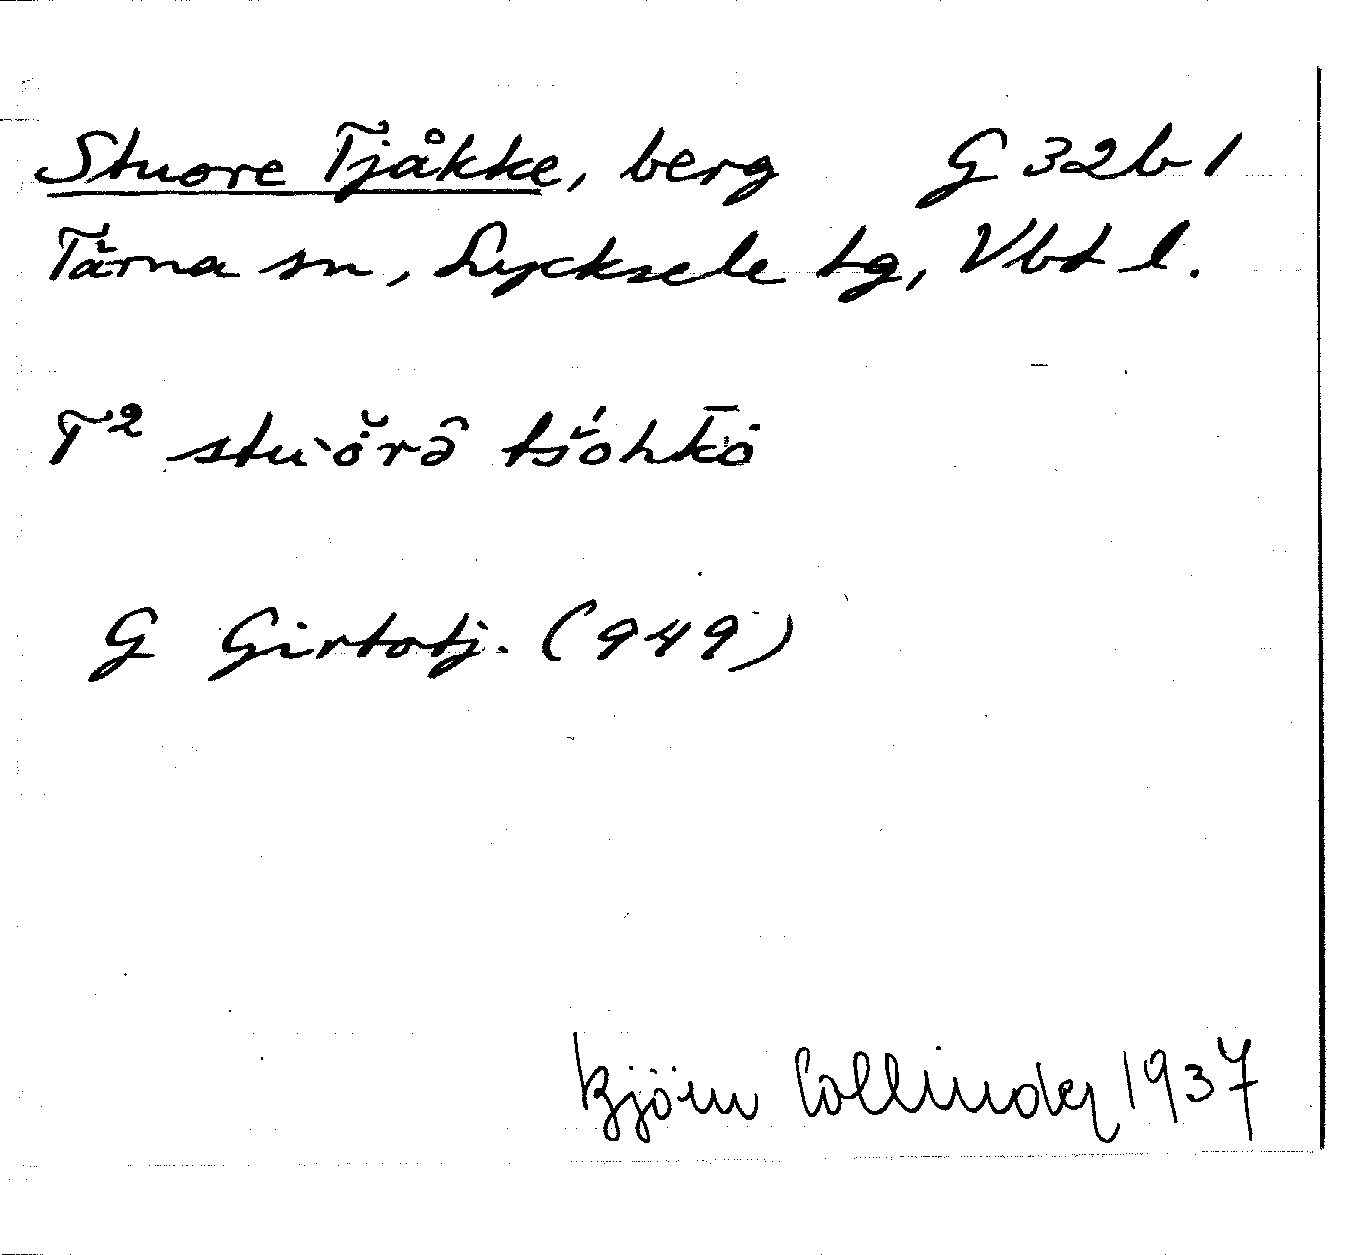 Stuore Tjåkke, berg G 32b 1
Tärna sn, Lycksele lg, Vbt l.
T² stu`ŏ̇rə̑ tš́óhk̄ȯ
G Girtotj. (949)
Björn Collinder 1937